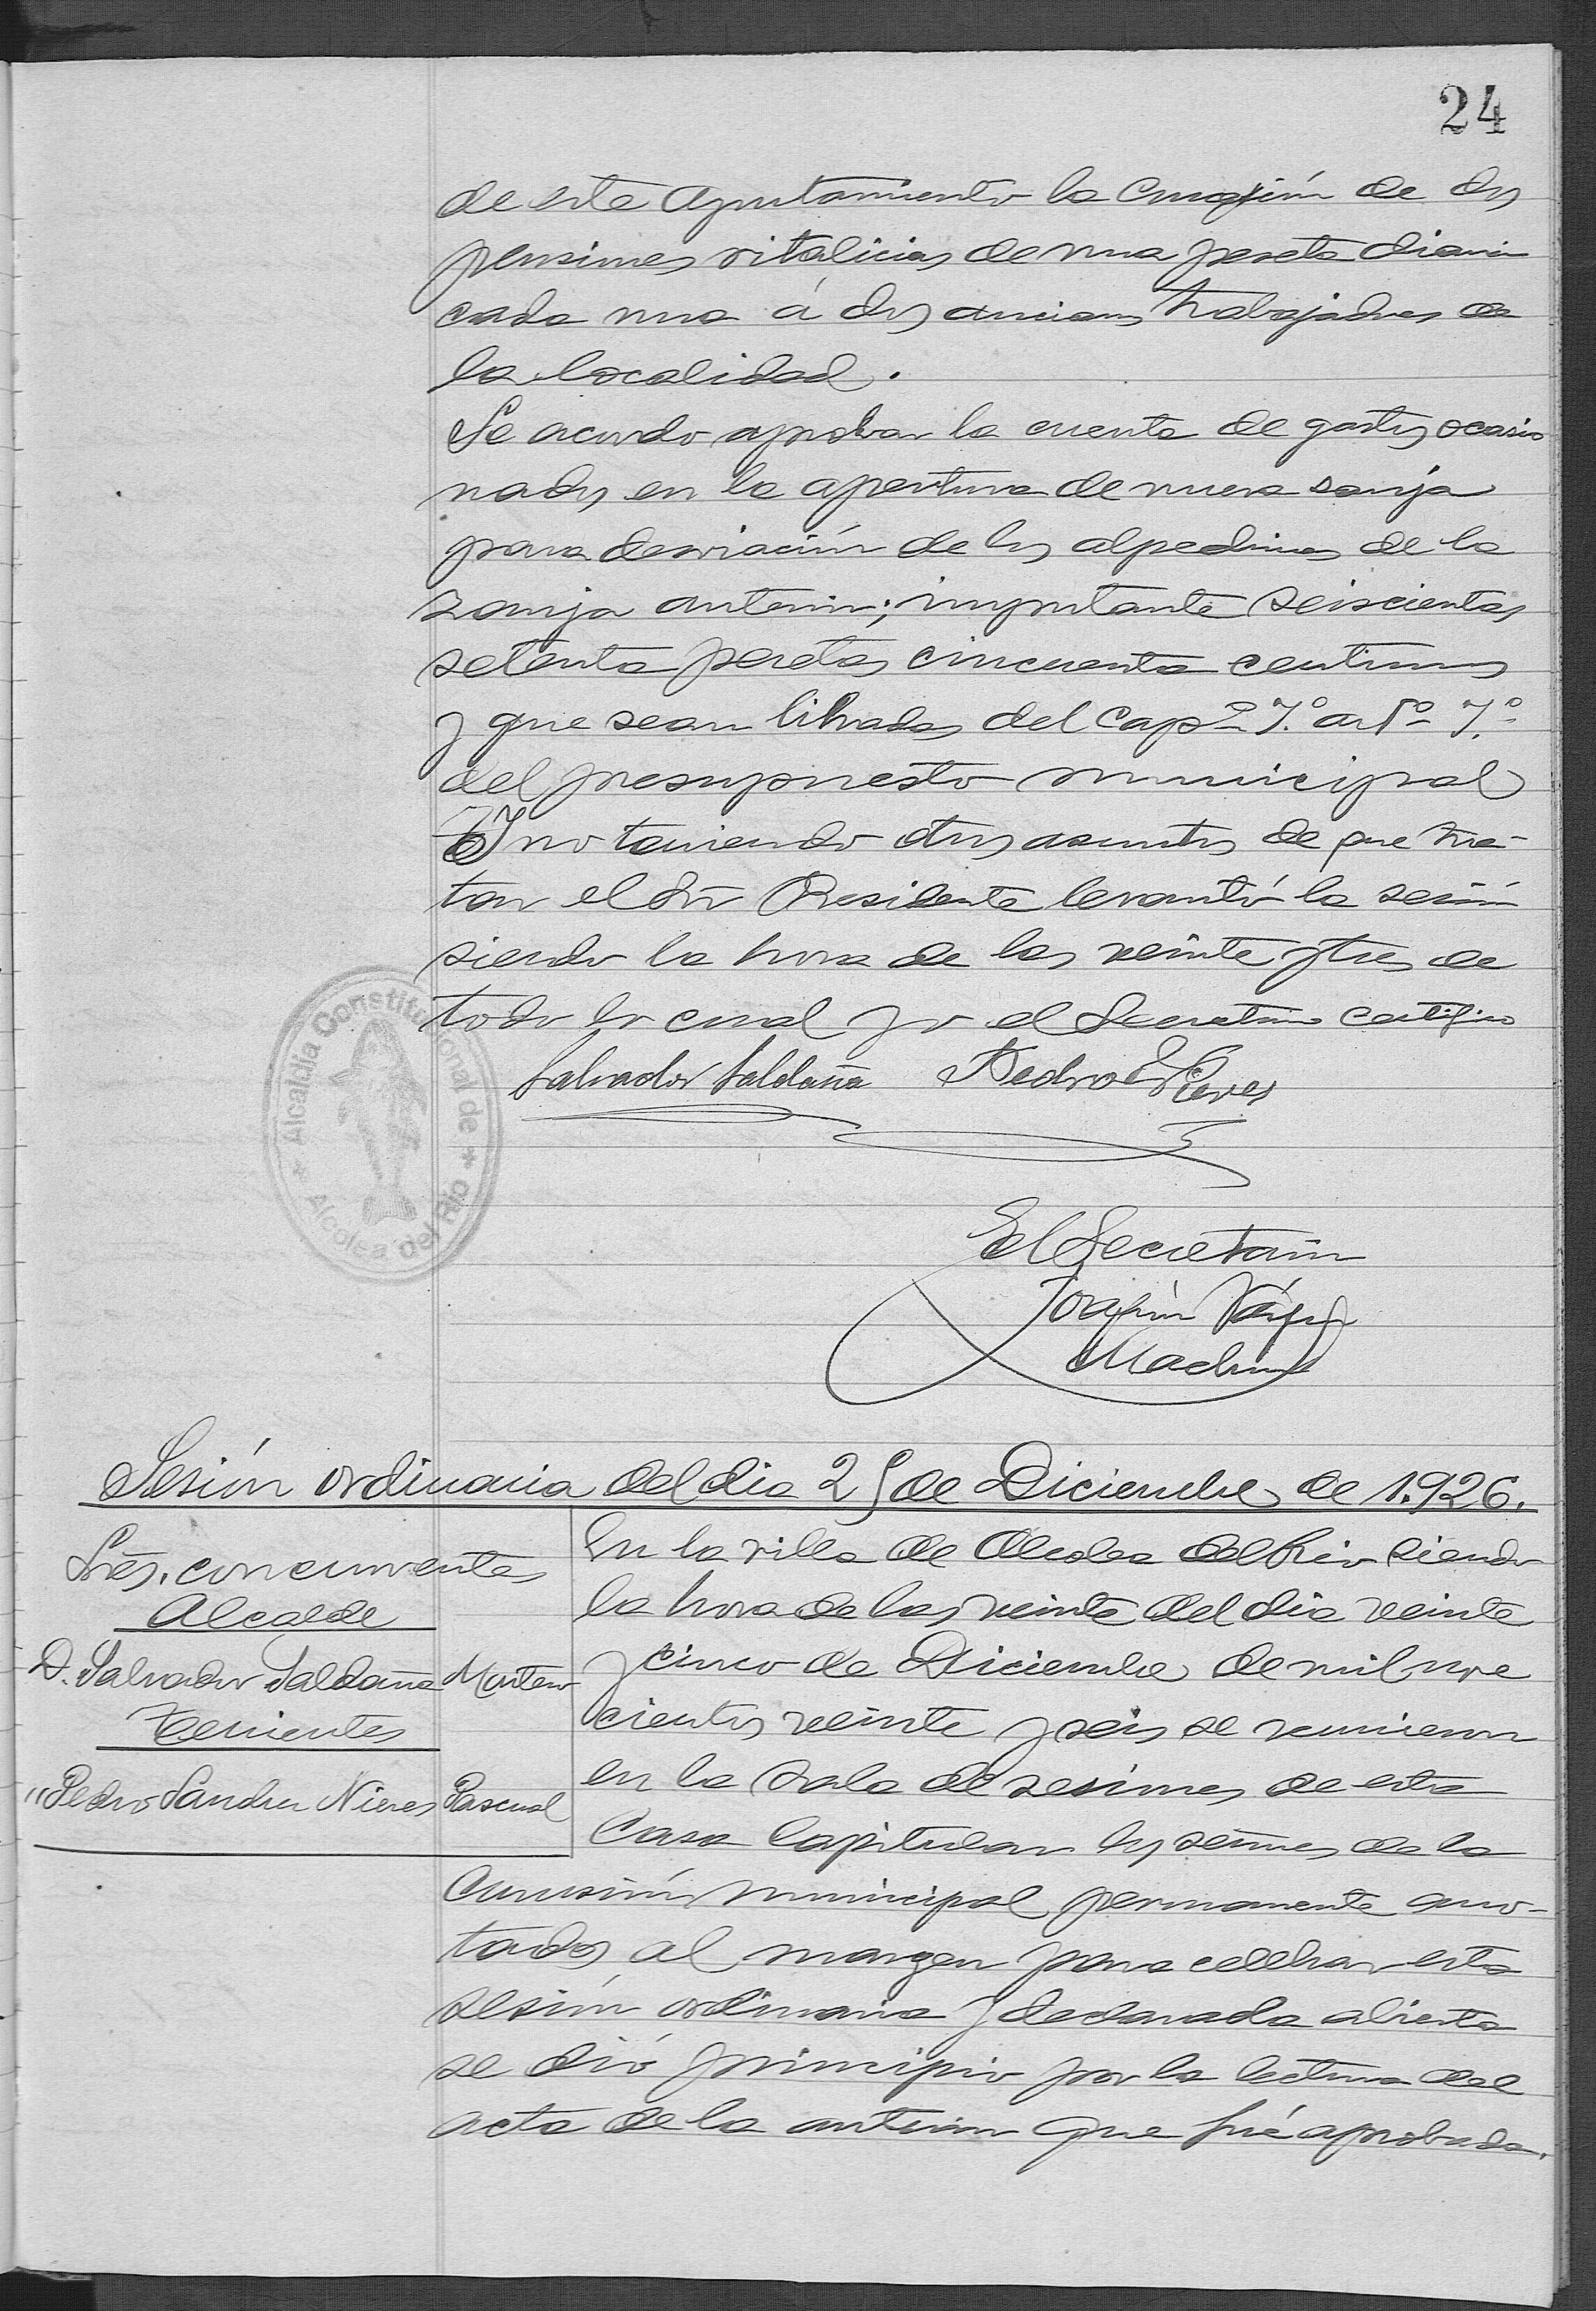 24
de este Ayuntamiento la creación de dos
pensiones vitalicias de una peseta diaria
cada una á dos ancianos trabajadores de
la localidad.
Se acordo aprobar la cuenta de gastos ocasio
nados en la apertura de nueva zanja
para desviación de los alpechines de la
zanja anterior; importante seiscientas
setenta pesetas cincuenta centimos
y que sean libradas del Capº 7.º artº 7.º
del presupuesto municipal
Y no teniendo otros asuntos de que tra-
tar el Sr Presidente levantó la sesión
siendo la hora de las veinte y tres de
todo lo cual yo el Secretario certifico
Salvador Saldaña Pedro S Nieves
Alcaldia Constitucional de
Alcolea del Rio
El Secretario
Joaquín
Sesión ordinaria del dia 25 de Diciembre de 1.926.
Sres. concurrentes
Alcalde
D. Salvador Saldaña Montero
Tenientes
"Pedro Sanchez Nieves Pascual
En la villa de Alcolea del Rio siendo
la hora de las veinte del dia veinte
y cinco de Diciembre de mil nove
cientos veinte y seis se reunieron
en la sala de sesiones de esta
Casa Capitular los señores de la
Comisión municipal permanente ano-
tados al margen para celebrar esta
sesión ordinaria y declarada abierta
se dió principio por la lectura del
acta de la anterior que fué aprobada.